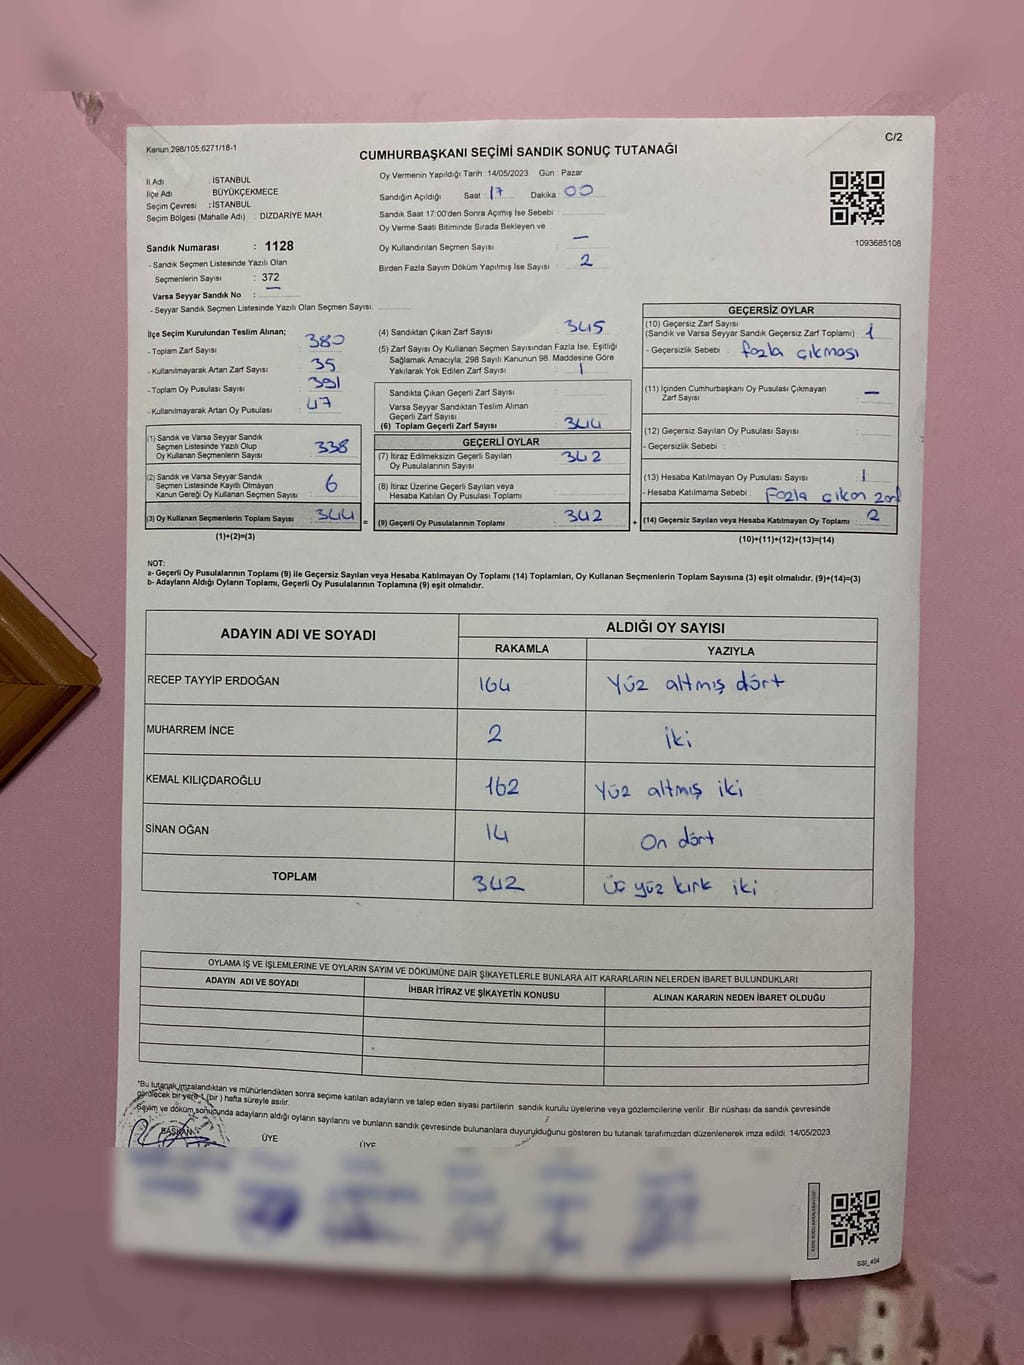 Kanun,298/105,6271/18-1
C/2
CUMHURBAŞKANI SEÇİMİ SANDIK SONUÇ TUTANAĞI
İl Adı : İSTANBUL
İlçe Adı : BÜYÜKÇEKMECE
Seçim Çevresi : İSTANBUL
Seçim Bölgesi (Mahalle Adı) : DİZDARİYE MAH.
Sandık Numarası : 1128
- Sandık Seçmen Listesinde Yazılı Olan
Seçmenlerin Sayısı : 372
Varsa Seyyar Sandık No : —
- Seyyar Sandık Seçmen Listesinde Yazılı Olan Seçmen Sayısı:
Oy Vermenin Yapıldığı Tarih :14/05/2023 Gün : Pazar
Sandığın Açıldığı Saat 17 Dakika 00
Sandık Saat 17:00'den Sonra Açımış İse Sebebi
Oy Verme Saati Bitiminde Sırada Bekleyen ve
Oy Kullandırılan Seçmen Sayısı —
Birden Fazla Sayım Döküm Yapılmış İse Sayısı 2
1093685108
İlçe Seçim Kurulundan Teslim Alınan;
- Toplam Zarf Sayısı : 380
- Kullanılmayarak Artan Zarf Sayısı : 35
- Toplam Oy Pusulası Sayısı : 391
- Kullanılmayarak Artan Oy Pusulası : 47
(1) Sandık ve Varsa Seyyar Sandık
Seçmen Listesinde Yazılı Olup
Oy Kullanan Seçmenlerin Sayısı 338
(2) Sandık ve Varsa Seyyar Sandık
Seçmen Listesinde Kayıtlı Olmayan
Kanun Gereği Oy Kullanan Seçmen Sayısı 6
(3) Oy Kullanan Seçmenlerin Toplam Sayısı : 344
=
(1)+(2)=(3)
(4) Sandıktan Çıkan Zarf Sayısı : 345
(5) Zarf Sayısı Oy Kullanan Seçmen Sayısından Fazla İse, Eşitliği
Sağlamak Amacıyla, 298 Sayılı Kanunun 98. Maddesine Göre
Yakılarak Yok Edilen Zarf Sayısı : 1
Sandıkta Çıkan Geçerli Zarf Sayısı
Varsa Seyyar Sandıktan Teslim Alınan
Geçerli Zarf Sayısı
(6) Toplam Geçerli Zarf Sayısı : 344
GEÇERLİ OYLAR
(7) İtiraz Edilmeksizin Geçerli Sayılan
Oy Pusulalarının Sayısı : 342
(8) İtiraz Üzerine Geçerli Sayılan veya
Hesaba Katılan Oy Pusulası Toplamı
(9) Geçerli Oy Pusulalarının Toplamı : 342
+
GEÇERSİZ OYLAR
(10) Geçersiz Zarf Sayısı
(Sandık ve Varsa Seyyar Sandık Geçersiz Zarf Toplamı) 1
- Geçersizlik Sebebi : fazla çıkması
(11) İçinden Cumhurbaşkanı Oy Pusulası Çıkmayan
Zarf Sayısı : —
(12) Geçersiz Sayılan Oy Pusulası Sayısı
- Geçersizlik Sebebi :
(13) Hesaba Katılmayan Oy Pusulası Sayısı : 1
- Hesaba Katılmama Sebebi : Fazla çıkan zarf
(14) Geçersiz Sayılan veya Hesaba Katılmayan Oy Toplamı 2
(10)+(11)+(12)+(13)=(14)
NOT:
a- Geçerli Oy Pusulalarının Toplamı (9) ile Geçersiz Sayılan veya Hesaba Katılmayan Oy Toplamı (14) Toplamları, Oy Kullanan Seçmenlerin Toplam Sayısına (3) eşit olmalıdır. (9)+(14)=(3)
b- Adayların Aldığı Oyların Toplamı, Geçerli Oy Pusulalarının Toplamına (9) eşit olmalıdır.
ADAYIN ADI VE SOYADI
ALDIĞI OY SAYISI
RAKAMLA YAZIYLA
RECEP TAYYİP ERDOĞAN 164 Yüz altmış dört
MUHARREM İNCE 2 iki
KEMAL KILIÇDAROĞLU 162 Yüz altmış iki
SİNAN OĞAN 14 On dört
TOPLAM 342 Üç yüz kırk iki
OYLAMA İŞ VE İŞLEMLERİNE VE OYLARIN SAYIM VE DÖKÜMÜNE DAİR ŞİKAYETLERLE BUNLARA AİT KARARLARIN NELERDEN İBARET BULUNDUKLARI
ADAYIN ADI VE SOYADI İHBAR İTİRAZ VE ŞİKAYETİN KONUSU ALINAN KARARIN NEDEN İBARET OLDUĞU
"Bu tutanak imzalandıktan ve mühürlendikten sonra seçime katılan adayların ve talep eden siyasi partilerin sandık kurulu üyelerine veya gözlemcilerine verilir. Bir nüshası da sandık çevresinde
görülecek bir yere 1 (bir) hafta süreyle asılır.
Sayım ve döküm sonucunda adayların aldığı oyların sayılarını ve bunların sandık çevresinde bulunanlara duyurulduğunu gösteren bu tutanak tarafımızdan düzenlenerek imza edildi. 14/05/2023
BAŞKAN ÜYE ÜYE
SSI_404